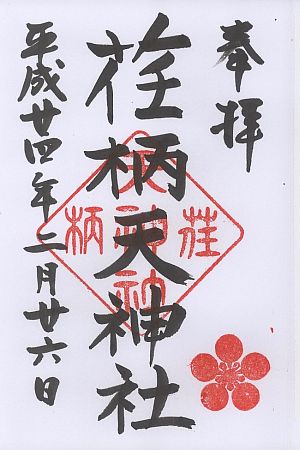 奉拝
荏柄天神社
平成廿四年二月廿六日
荏
柄
天神社